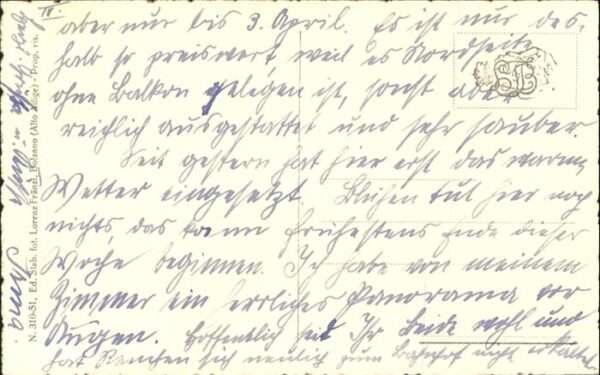 IV.
aber nur bis 3. April. Es ist nur des-
halb so preiswert, weil es Nordseite,
ohne Balkon gelegen ist, sonst aber
reichlich ausgestattet und sehr sauber.
Seit gestern hat hier erst das warme
Wetter eingesetzt. Blühen tut hier noch
nichts, das kann frühestens Ende dieser
Woche beginnen. Ich habe von meinem
Zimmer ein herrliches Panorama vor
Augen. Hoffentlich seid Ihr beide wohl und
hat sich neulich zum Bahnhof nicht erkältet.
N. 310-51, Ed. Stab. fot. Lorenz Fränzl, Bolzano (Alto Adige) - Prop. ris.